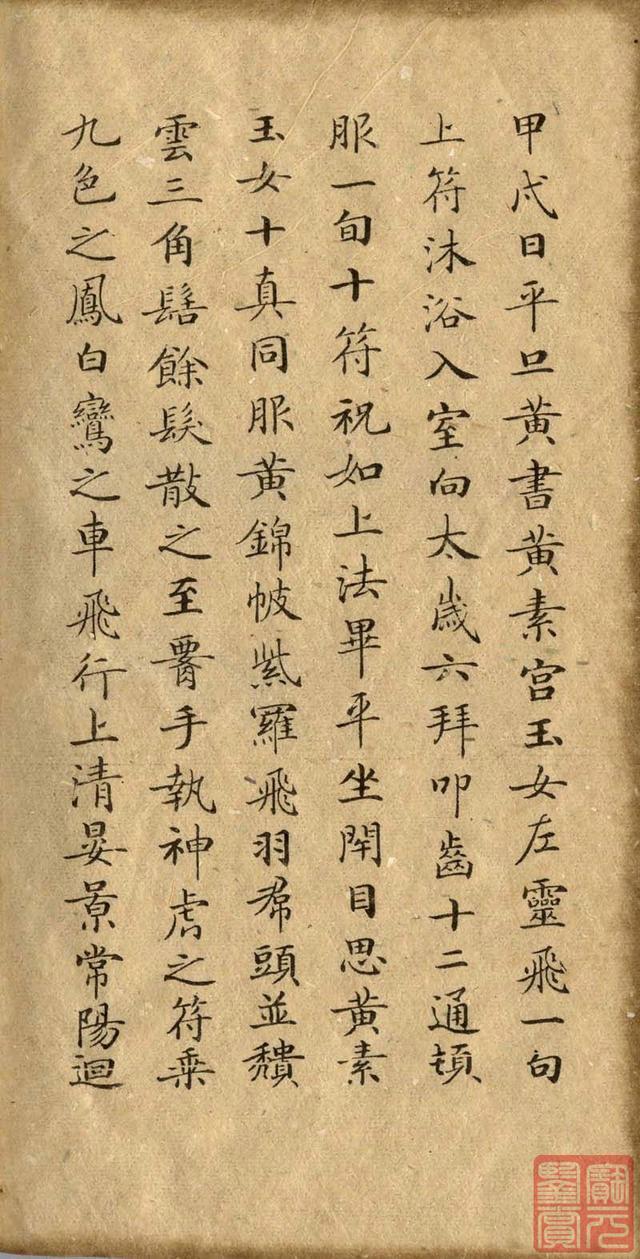 甲戌日平旦黃書黃素宮玉女左靈飛一旬
上符沐浴入室向太歲六拜叩齒十二通頓
服一旬十符祝如上法畢平坐閉目思黃素
玉女十真同服黃錦帔紫羅飛羽帬頭並頽
雲三角髻餘髮散之至䝿手執神虎之符乘
九色之鳳白鸞之車飛行上清晏景常陽迴